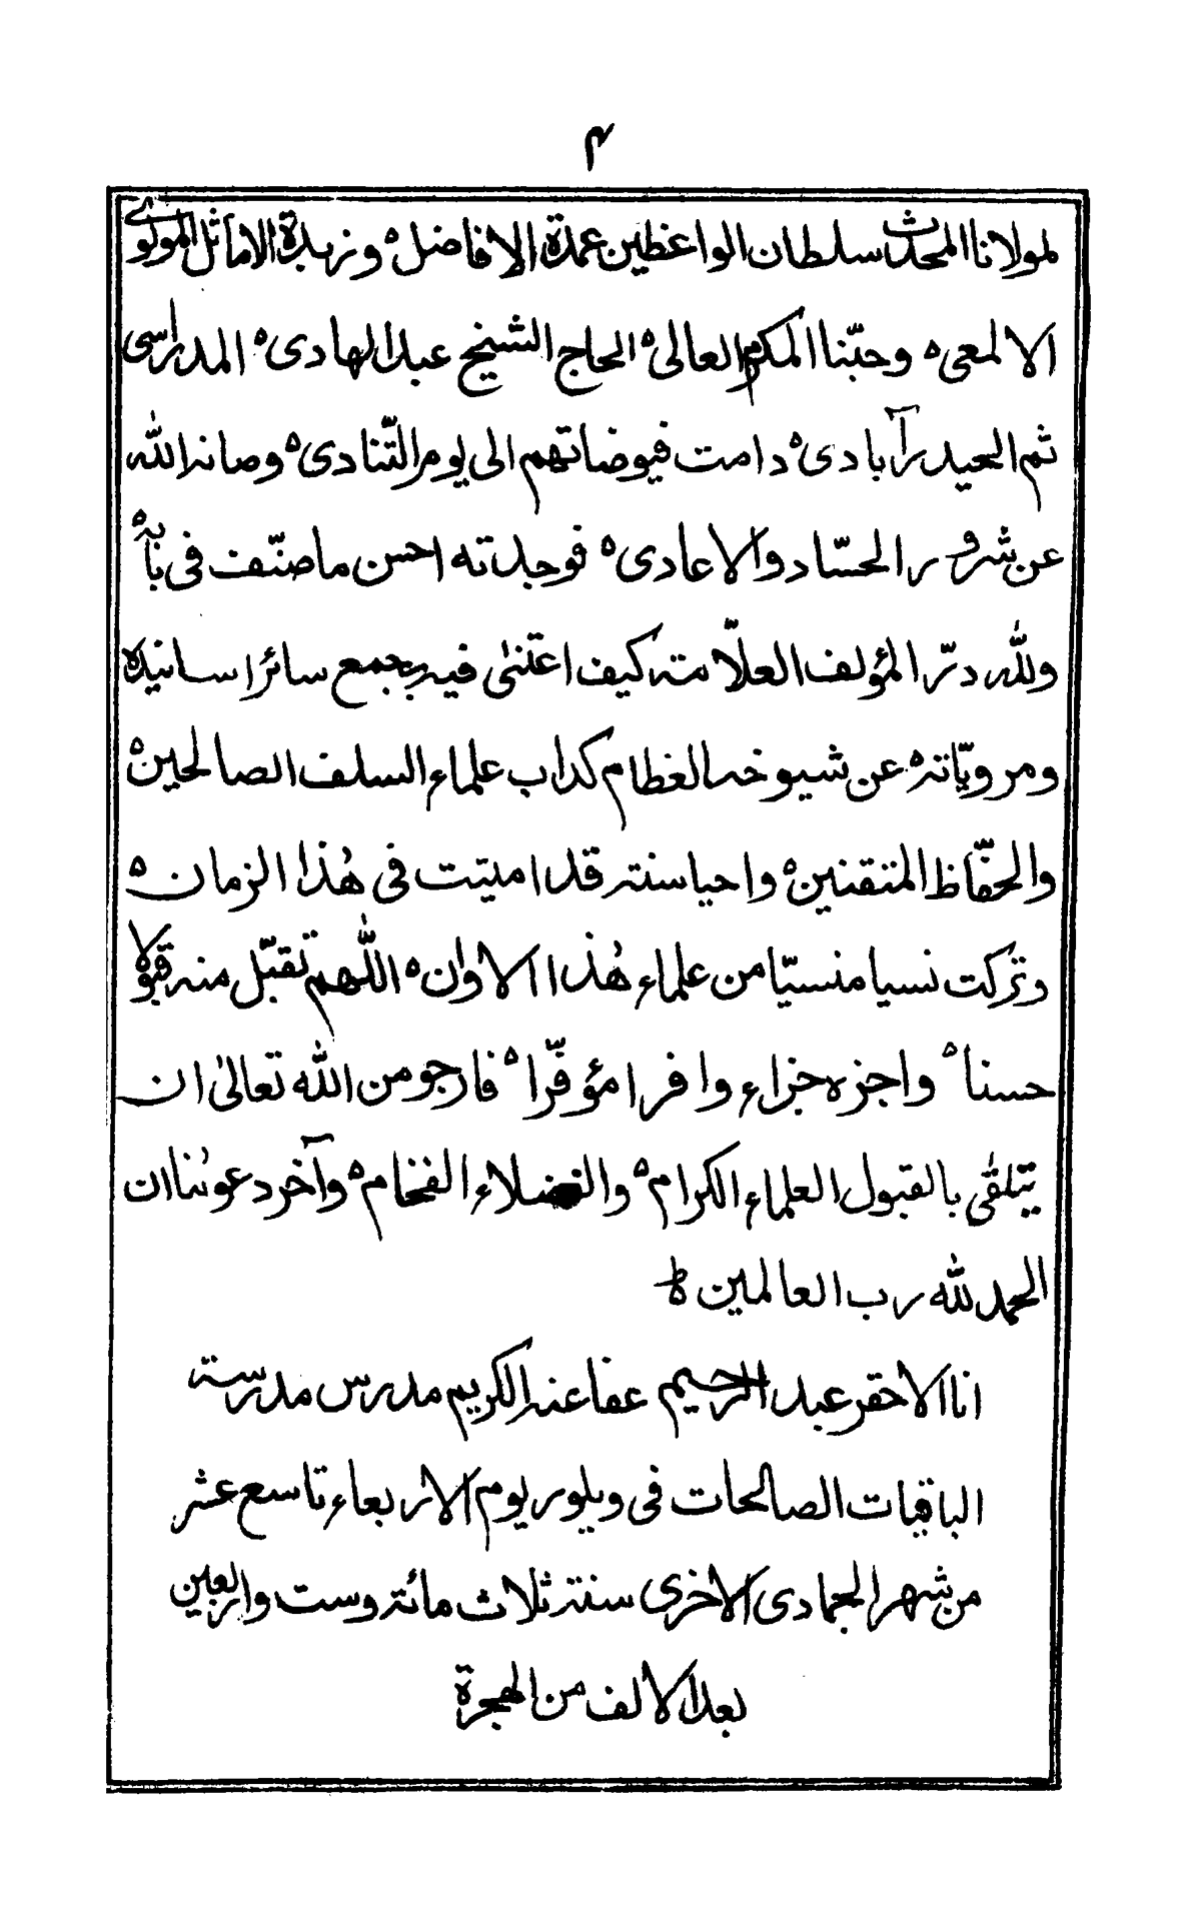 ۴
لمولانا المحدث سلطان الواعظين عمدة الافاضل ٥ وزبدة الاماثل المولوي
الالمعى ٥ وحبّنا المكرم العالى ٥ الحاج الشيخ عبد الهادى ٥ المدراسى
ثم الحيدرآبادى ٥ دامت فيوضاتهم الى يوم التّنادى ٥ وصانه الله
عن شرور الحسّاد والاعادى ٥ فوجدته احسن ما صنّف فى بابه ٥
ولله درّ المؤلف العلّامة كيف اعتنىٰ فيه بجمع سائر اسانيده
ومرويّاته ٥ عن شيوخه العظام كداب علماء السلف الصالحين ٥
والحفّاظ المتقنين ٥ واحيا سنة قد اميتت فى هٰذا الزمان ٥
وتركت نسيا منسيّا من علماء هٰذا الاوان ٥ اللّٰهم تقبّل منه قبولا
حسنا ٥ واجزه جزاء وافرا مؤفّرا ٥ فارجو من الله تعالىٰ ان
يتلقى بالقبول العلماء الكرام ٥ والفضلاء الفخام ٥ وآخر دعوٰنا ان
الحمد لله رب العالمين ط
انا الاحقر عبد الرحيم عفا عنه الكريم مدرس مدرسة
الباقيات الصالحات فى ويلور يوم الاربعاء تاسع عشر
من شهر الجمادى الاخرى سنة ثلاث مائة وست واربعين
بعد الالف من الهجرة